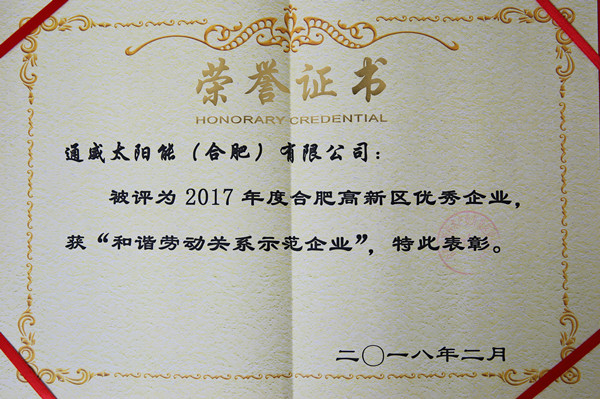 荣誉证书
HONORARY CREDENTIAL
通威太阳能（合肥）有限公司：
被评为 2017 年度合肥高新区优秀企业，
获“和谐劳动关系示范企业”，特此表彰。
二〇一八年二月